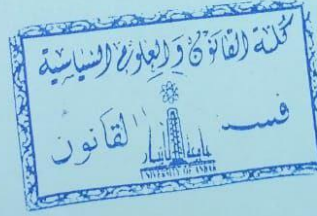 كلية القانون والعلوم السياسية
قسم القانون
جامعة الأنبار
UNIVERSITY OF ANBAR